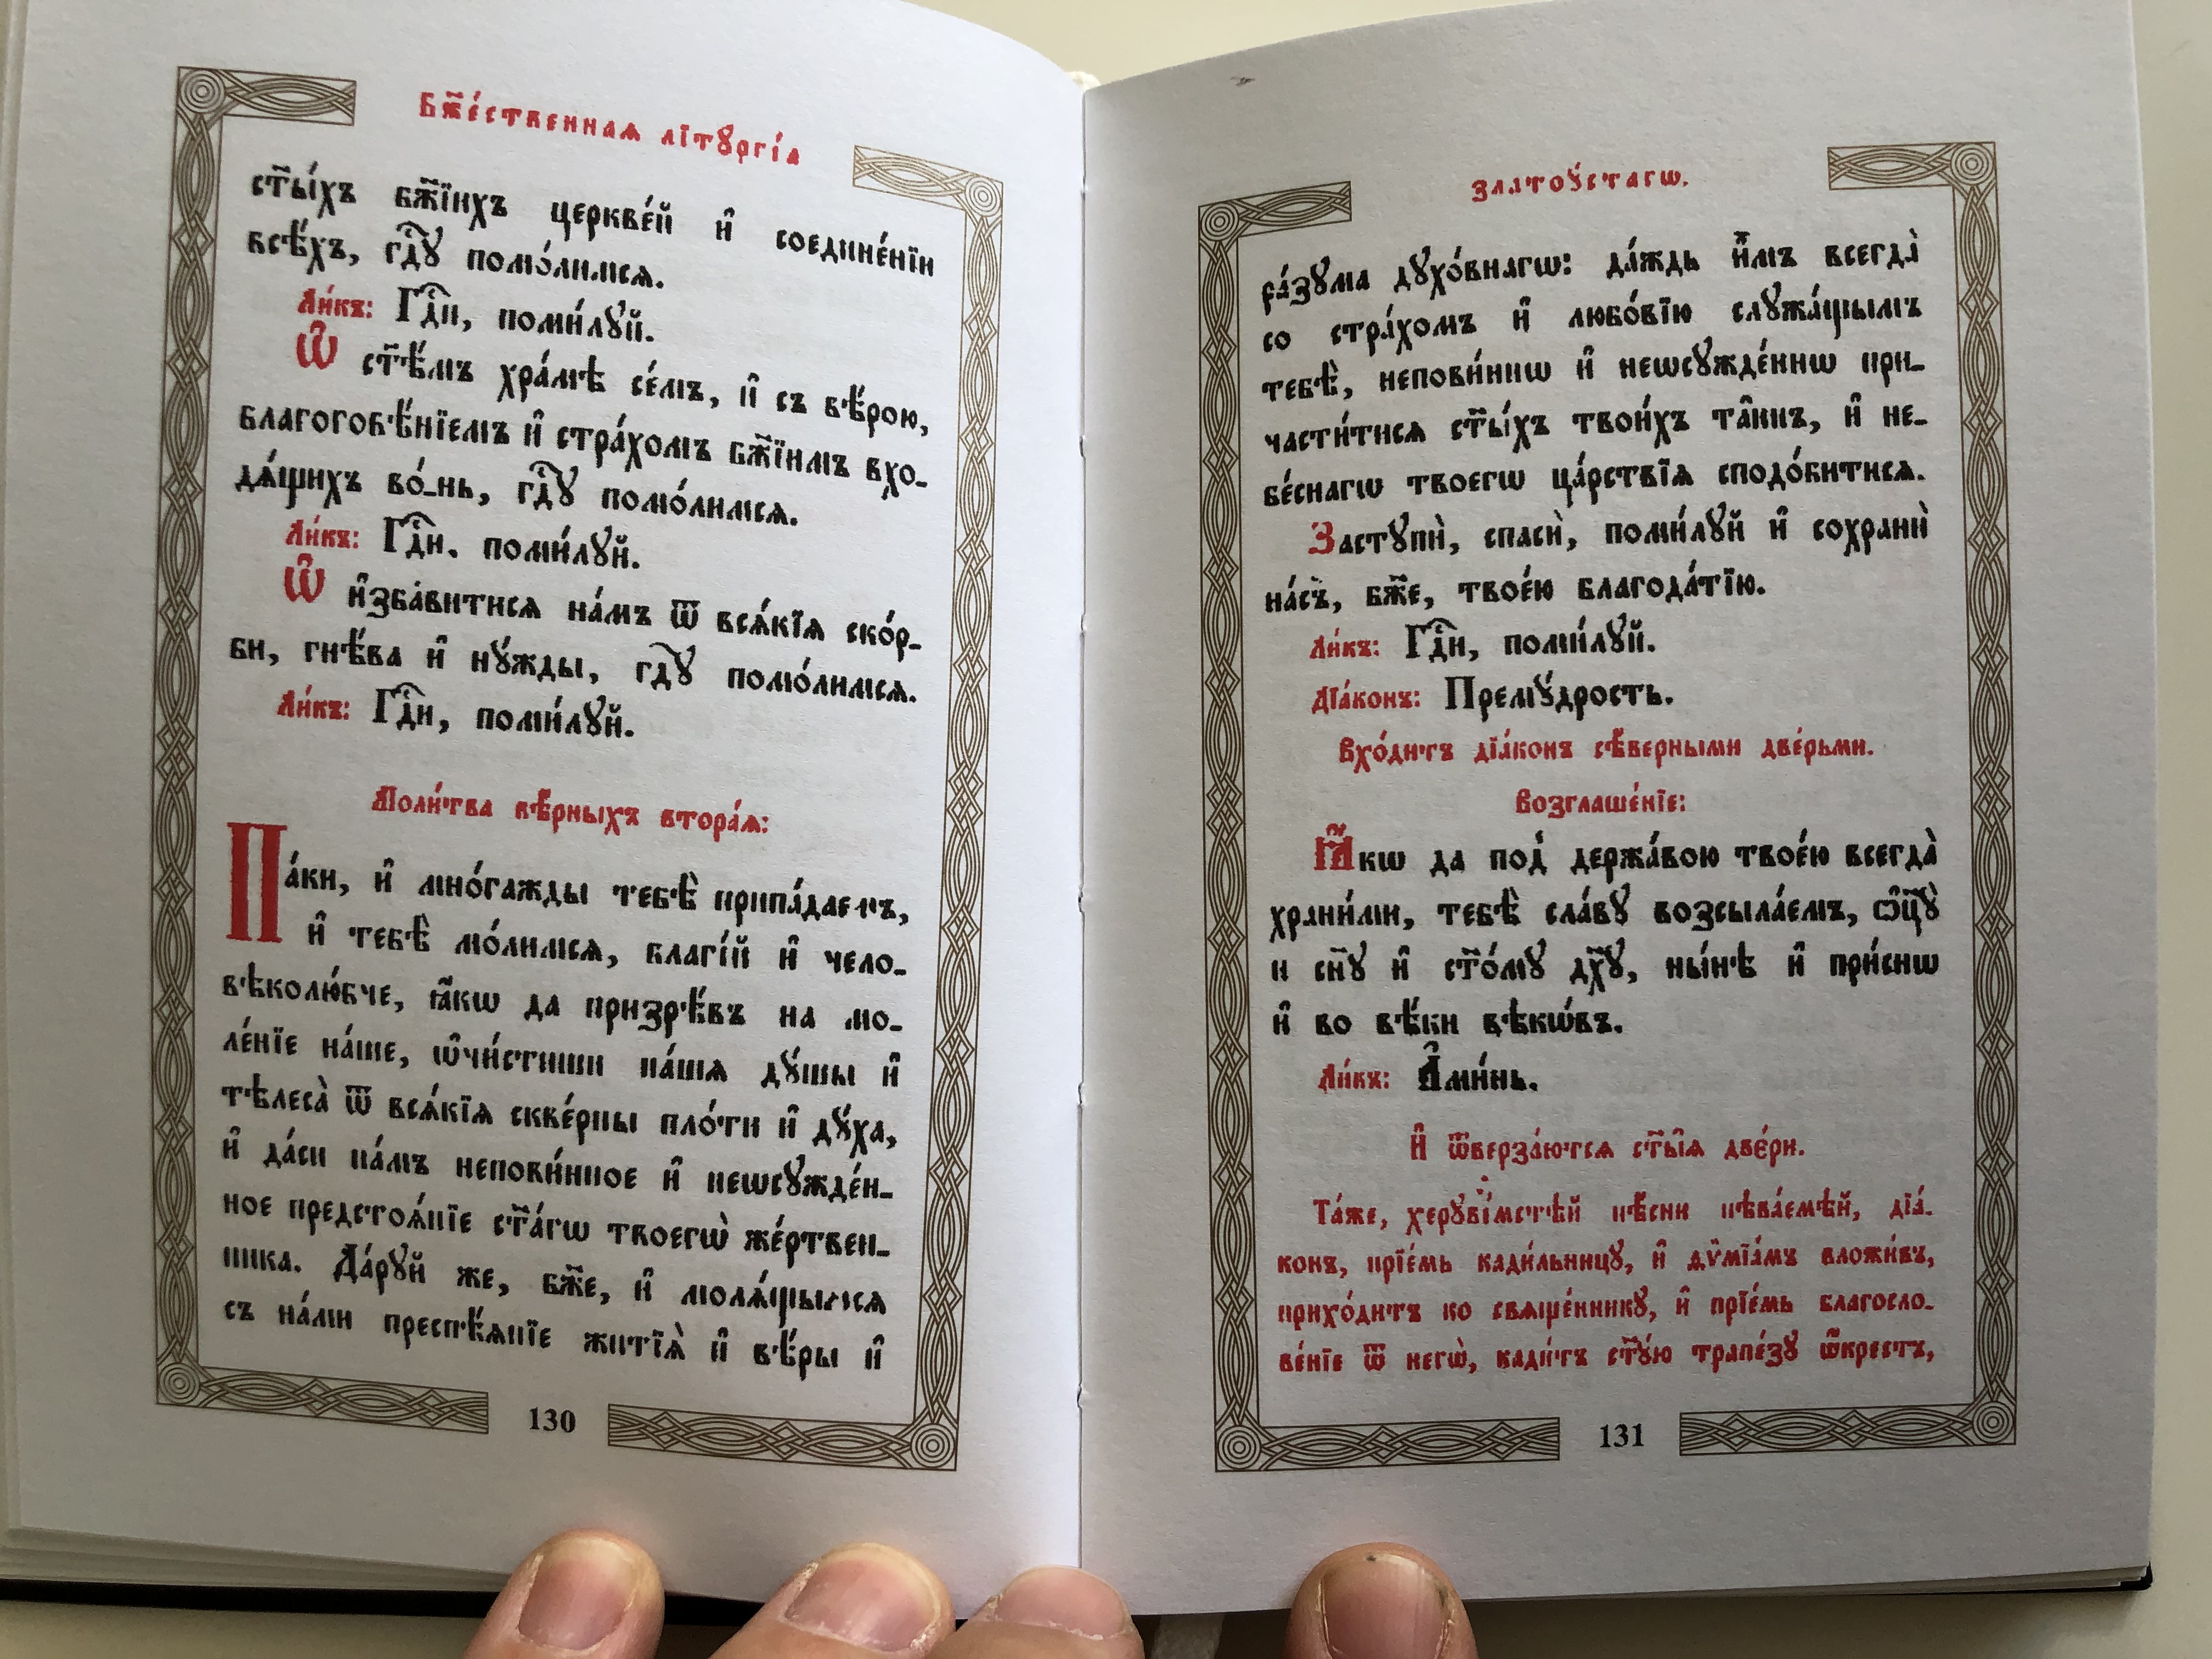 Бж҃е́ственнаѧ лїтꙋргі́а
ст҃ы́хъ бж҃їихъ церкве́й и҆ соедине́нїи
всѣ́хъ, гдⷭ҇ꙋ помо́лимсѧ.
Ли́къ: Гдⷭ҇и, поми́лꙋй.
Ѽ ст҃ѣ́мъ хра́мѣ се́мъ, и҆ съ вѣ́рою,
благоговѣ́нїемъ и҆ стра́хомъ бж҃їимъ вхо-
дѧ́щихъ во́-нь, гдⷭ҇ꙋ помо́лимсѧ.
Ли́къ: Гдⷭ҇и. поми́лꙋй.
Ѽ и҆зба́витисѧ на́мъ ѿ всѧ́кїѧ ско́р-
би, гнѣ́ва и҆ нꙋ́жды, гдⷭ҇ꙋ помо́лимсѧ.
Ли́къ: Гдⷭ҇и, поми́лꙋй.
Моли́тва вѣ́рныхъ втора́ѧ:
Па́ки, и҆ мно́гажды тебѣ̀ припа́даемъ,
и҆ тебѣ̀ мо́лимсѧ, благі́й и҆ чело-
вѣколю́бче, ꙗ҆́кѡ да призрѣ́въ на мо-
ле́нїе на́ше, ѡ҆чи́стиши на́шѧ дꙋ́шы и҆
тѣлеса̀ ѿ всѧ́кїѧ скве́рны пло́ти и҆ дꙋ́ха,
и҆ да́си на́мъ непови́нное и҆ неѡсꙋжде́н-
ное предстоѧ́нїе ст҃а́гѡ твоегѡ̀ же́ртвен-
ника. Да́рꙋй же, бж҃е, и҆ молѧ́щымсѧ
съ на́ми преспѣ́ѧнїе житїѧ̀ и҆ вѣ́ры и҆
130
златоꙋ́стагѡ.
ра́зꙋма дꙋхо́внагѡ: да́ждь и҆̀мъ всегда̀
со стра́хомъ и҆ любо́вїю слꙋжа́щымъ
тебѣ̀, непови́ннѡ и҆ неѡсꙋжде́ннѡ при-
части́тисѧ ст҃ы́хъ твои́хъ та̑инъ, и҆ не-
бе́снагѡ твоегѡ ца́рствїѧ сподо́битисѧ.
Застꙋпѝ, спасѝ, поми́лꙋй и҆ сохранѝ
на́съ̀, бж҃е, твое́ю благода́тїю.
Ли́къ: Гдⷭ҇и, поми́лꙋй.
Дїа́конъ: Премꙋ́дрость.
Вхо́дитъ дїа́конъ сѣ́верными две́рьми.
Возглаше́нїе:
Ꙗ҆́кѡ да под̾ держа́вою твое́ю всегда̀
храни́ми, тебѣ̀ сла́вꙋ возсыла́емъ, ѻ҆ц҃ꙋ̀
и сн҃ꙋ и҆ ст҃о́мꙋ дх҃ꙋ, ны́нѣ и҆ при́снѡ
и҆ во вѣ́ки вѣкѡ́въ.
Ли́къ: А҆ми́нь.
И҆ ѿверза́ютсѧ ст҃ы̑ѧ две́ри.
Та́же, херꙋві́мстѣй пѣ́сни пѣва́емѣй, дїа́-
конъ, прїе́мь кади́льницꙋ, и҆ ѳѷмїа́мъ вложи́въ,
прихо́дитъ ко свѧще́нникꙋ, и҆ прїе́мь благосло-
ве́нїе ѿ негѡ̀, кади́тъ ст҃ꙋ́ю трапе́зꙋ ѡ҆́крестъ,
131